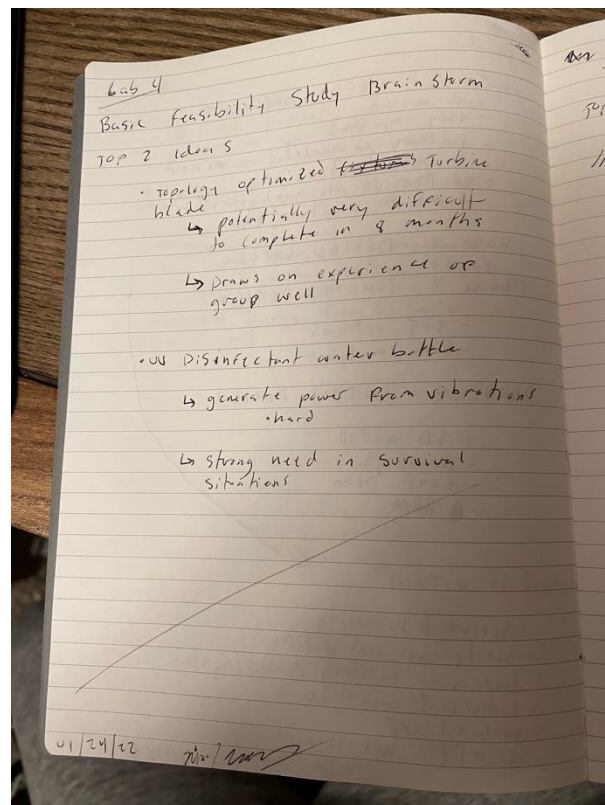 Lab 4
Basic Feasibility Study Brainstorm
Top 2 Ideas
• Topology optimized Turbine
blade
↳ potentially very difficult
to complete in 8 months
↳ Draws on experience of
group well
• UV Disinfectant water bottle
↳ generate power from vibrations
• hard
↳ strong need in survival
situations
01/24/22